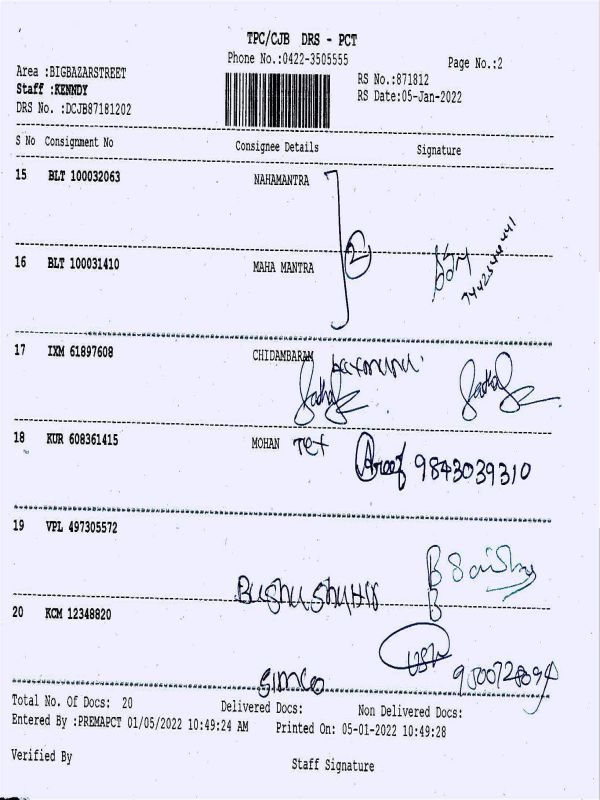 TPC/CJB DRS - PCT
Phone No.:0422-3505555
Page No.:2
Area :BIGBAZARSTREET
RS No.:871812
Staff :KENNDY
RS Date:05-Jan-2022
DRS No. :DCJB87181202
S No Consignment No Consignee Details Signature
15 BLT 100032063 NAHAMANTRA
2
16 BLT 100031410 MAHA MANTRA
17 IXM 61897608 CHIDAMBARAM
18 KUR 608361415 MOHAN Tex 9843039310
19 VPL 497305572
20 KCM 12348820
Simco
Total No. Of Docs: 20 Delivered Docs: Non Delivered Docs:
Entered By :PREMAPCT 01/05/2022 10:49:24 AM Printed On: 05-01-2022 10:49:28
Verified By Staff Signature